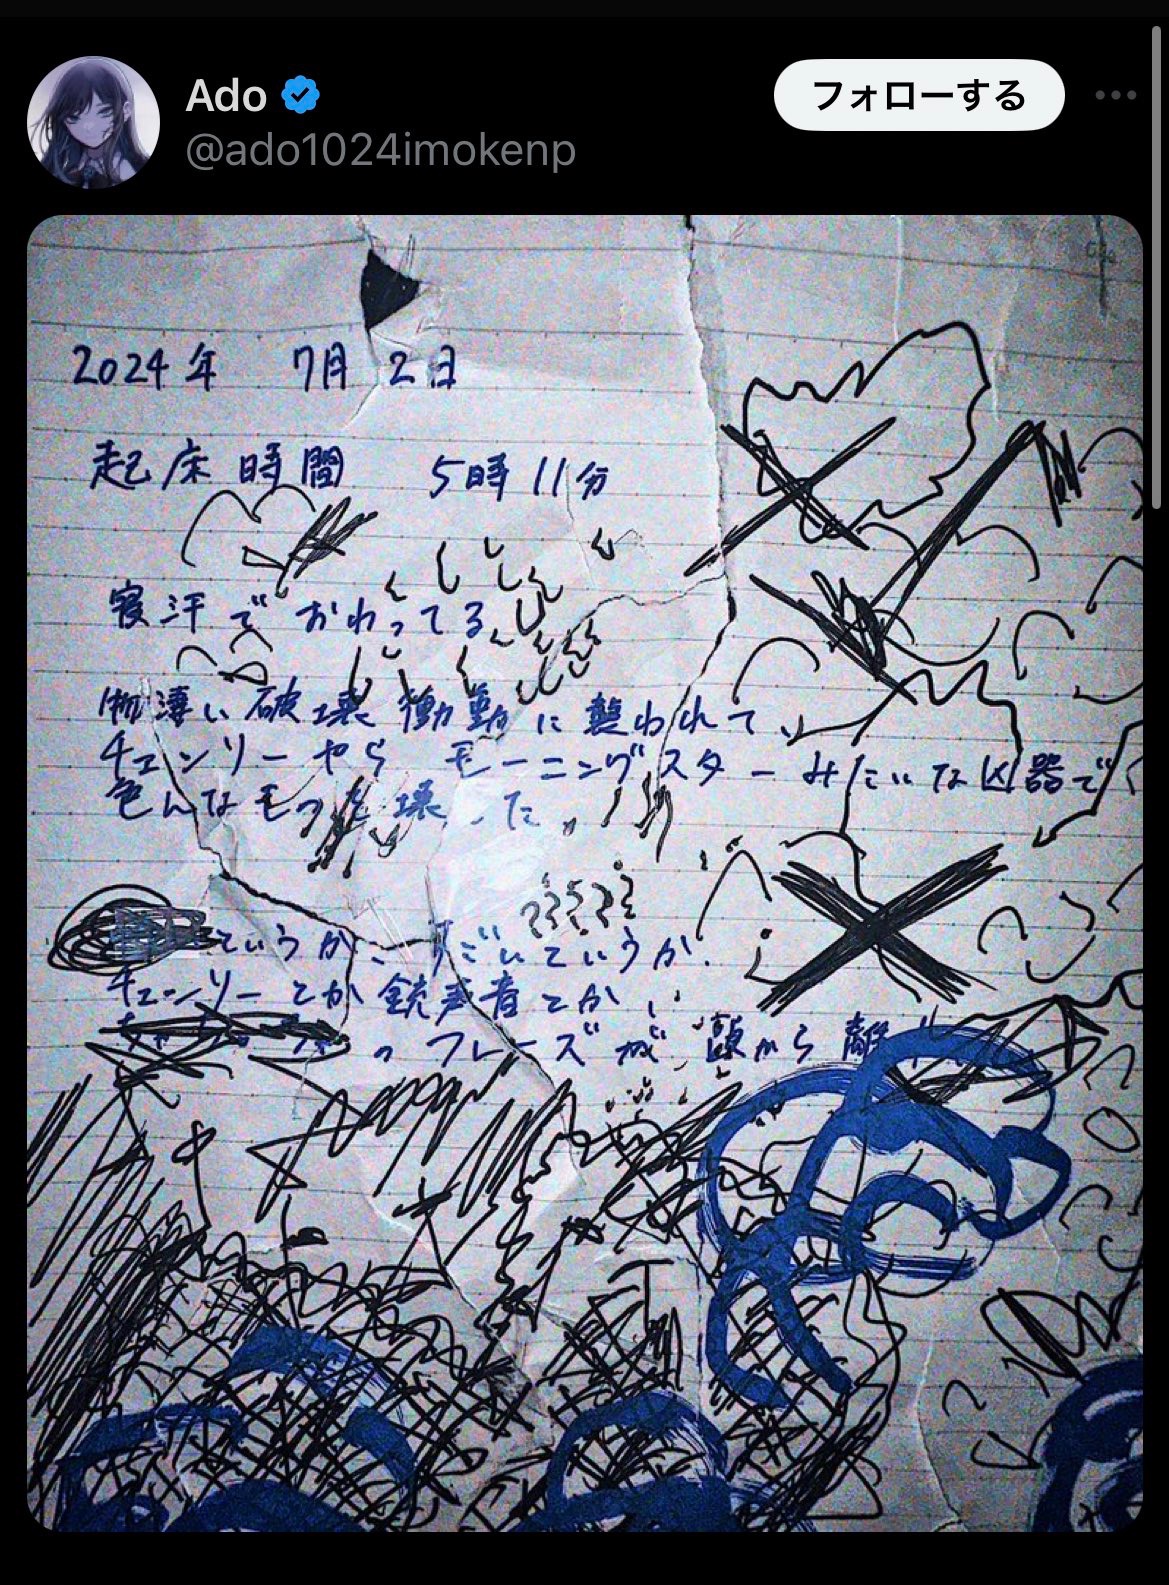 Ado
@ado1024imokenp
フォローする
2024年 7月2日
起床時間 5時11分
寝汗でおわってる
物凄い破壊衝動に襲われて、
チェンソーやら モーニングスターみたいな凶器で
色んなモノを壊した。
ていうかすごいていうか.
チェンソーとか銃声音とか
のフレーズが 頭から離れ